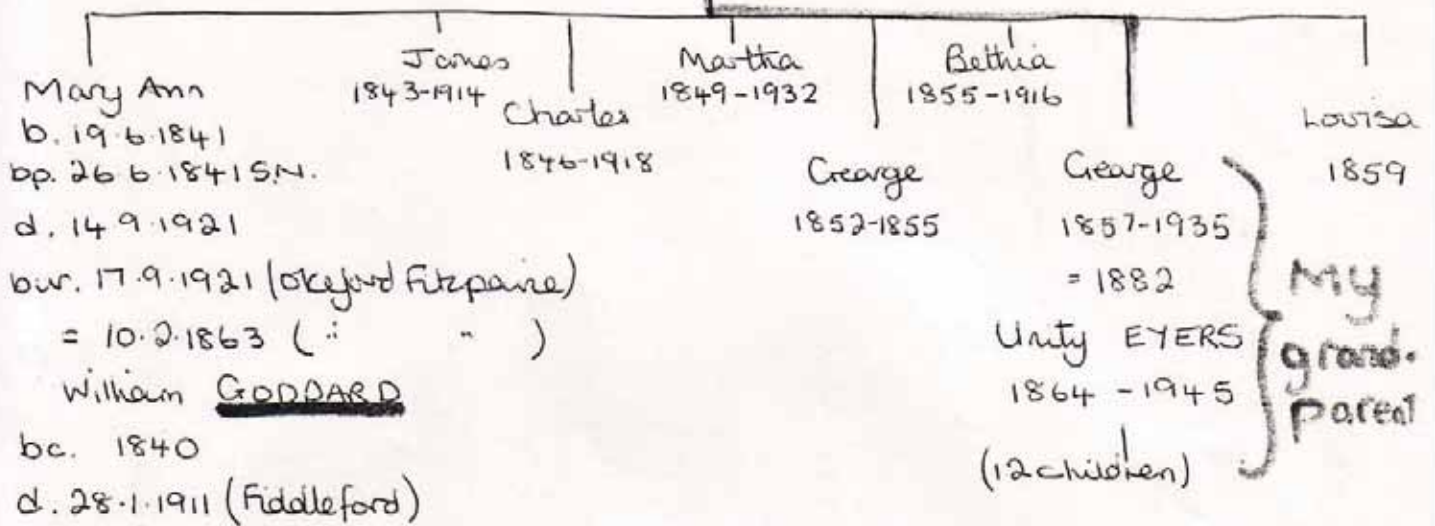 Mary Ann
b. 19.6.1841
bp. 26.6.1841 S.N.
d. 14.9.1921
bur. 17.9.1921 (Okeford Fitzpaine)
= 10.2.1863 ( " " )
William GODDARD
bc. 1840
d. 28.1.1911 (Fiddleford)
James
1843-1914
Charles
1846-1918
Martha
1849-1932
George
1852-1855
Bethia
1855-1916
George
1857-1935
= 1882
Unity EYERS
1864-1945
(12 children)
My
grand.
parent
Louisa
1859